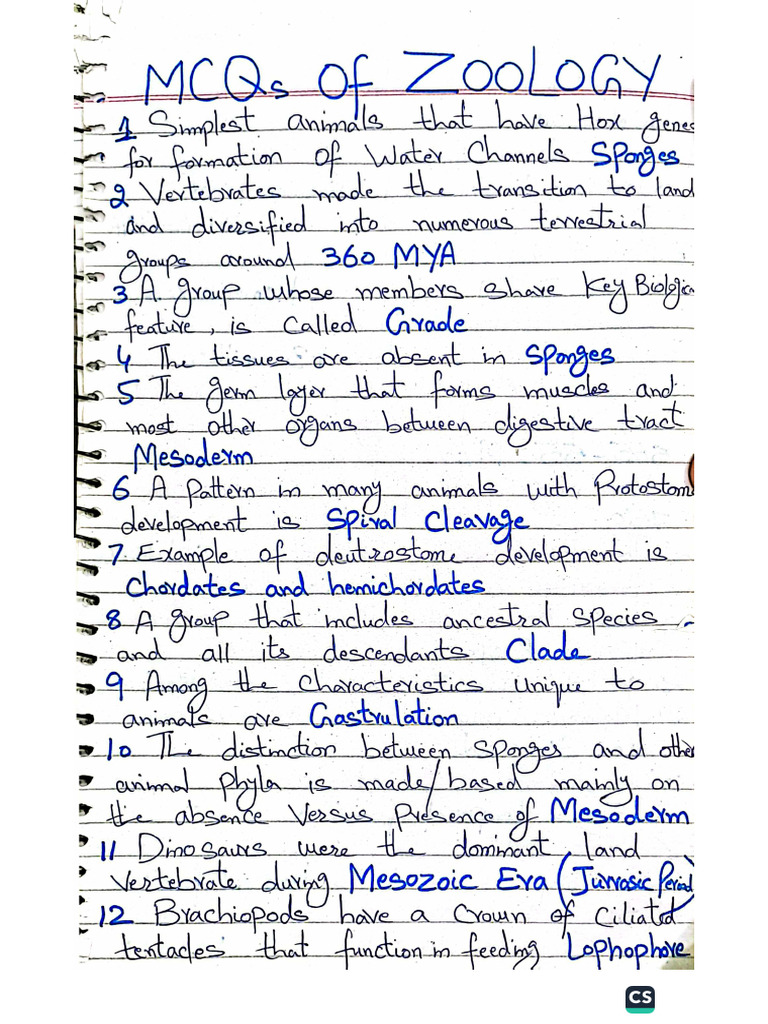 MCQs Of ZOOLOGY
1 Simplest animals that have Hox genes
for formation of Water Channels Sponges
2 Vertebrates made the transition to land
and diversified into numerous terrestrial
groups around 360 MYA
3 A group whose members share Key Biologica
feature, is called Grade
4 The tissues are absent in Sponges
5 The germ layer that forms muscles and
most other organs between digestive tract
Mesoderm
6 A Pattern in many animals with Protostom
development is Spiral Cleavage
7 Example of deutrostome development is
Chordates and hemichordates
8 A group that includes ancestral species
and all its descendants Clade
9 Among the characteristics unique to
animals are Gastrulation
10 The distinction between sponges and other
animal phyla is made/based mainly on
the absence Versus Presence of Mesoderm
11 Dinosaurs were the dominant land
vertebrate during Mesozoic Era (Jurrasic Period)
12 Brachiopods have a crown of ciliated
tentacles that function in feeding Lophophore
CS